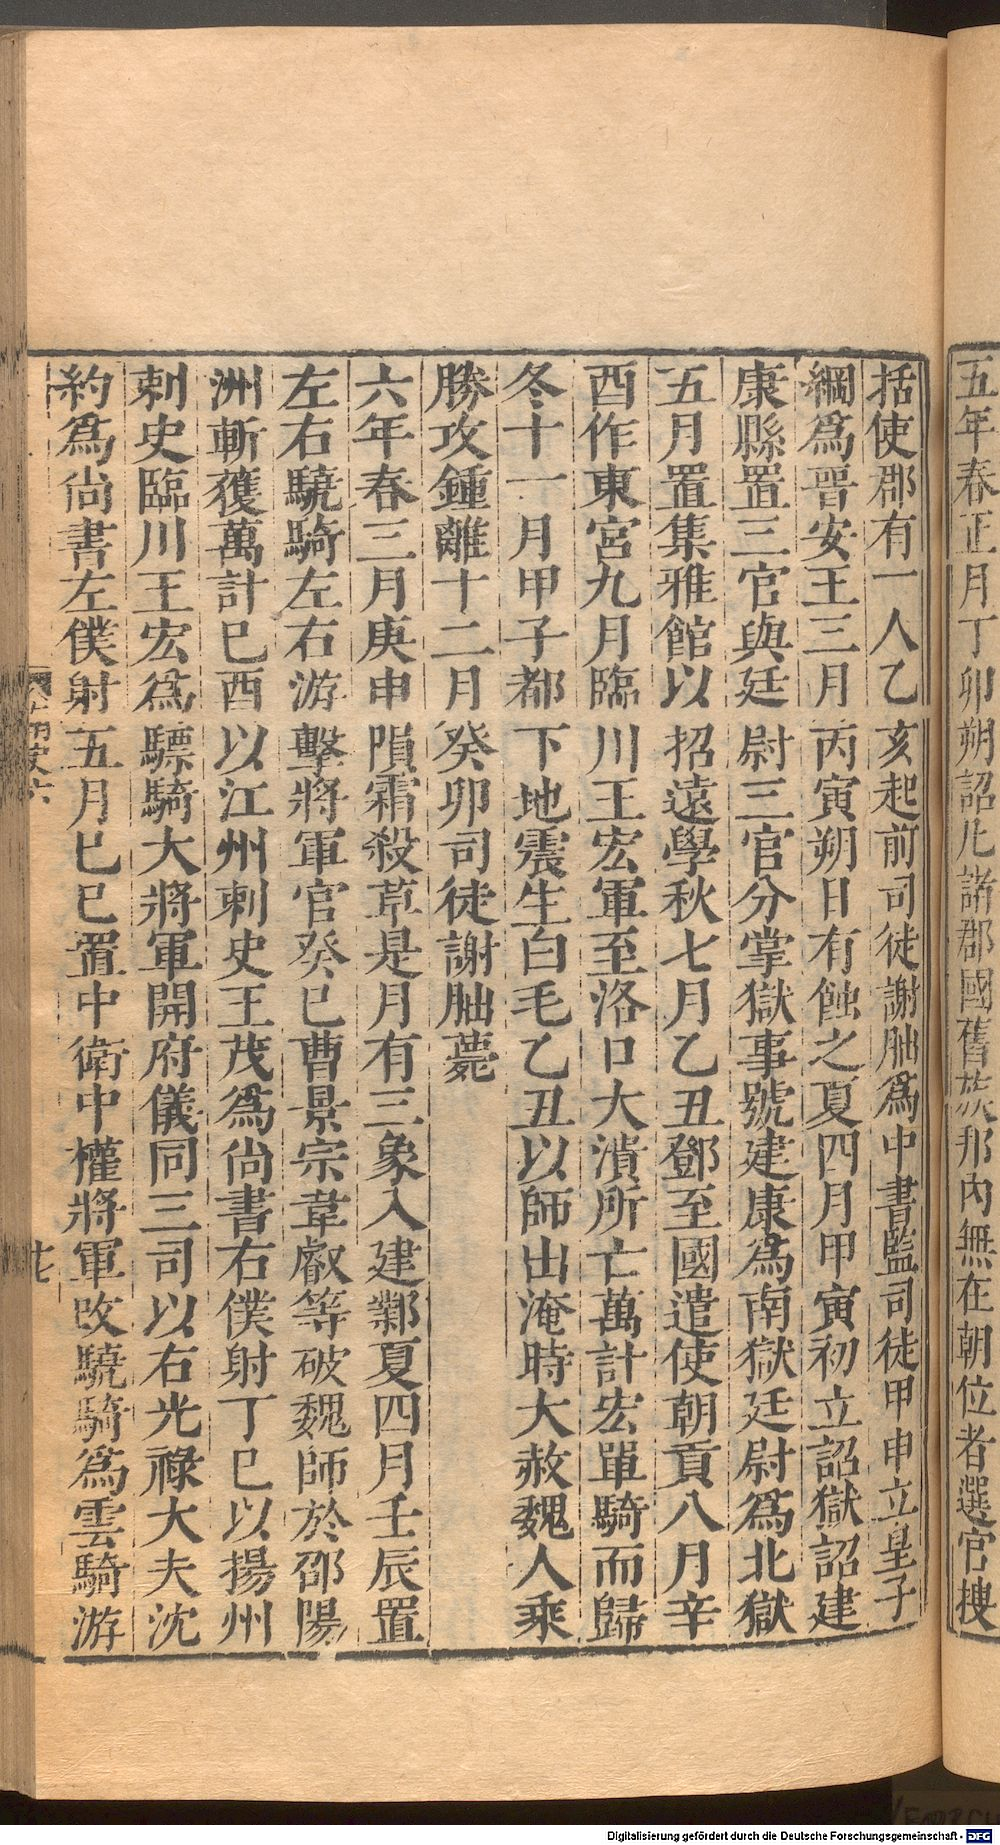 五年春正月丁卯朔詔凡諸郡國舊族邦內無在朝位者選官搜
括使郡有一人乙亥起前司徒謝朏為中書監司徒甲申立皇子
綱為晉安王三月丙寅朔日有蝕之夏四月甲寅初立詔獄詔建
康縣置三官與廷尉三官分掌獄事號建康為南獄廷尉為北獄
五月置集雅館以招遠學秋七月乙丑鄧至國遣使朝貢八月辛
酉作東宮九月臨川王宏軍至洛口大潰所亡萬計宏單騎而歸
冬十一月甲子都下地震生白毛乙丑以師出淹時大赦魏人乘
勝攻鍾離十二月癸卯司徒謝朏薨
六年春三月庚申隕霜殺草是月有三象入建鄴夏四月壬辰置
左右驍騎左右游擊將軍官癸巳曹景宗韋叡等破魏師於邵陽
洲斬獲萬計已酉以江州刺史王茂為尚書右僕射丁巳以揚州
刺史臨川王宏為驃騎大將軍開府儀同三司以右光祿大夫沈
約爲尚書左僕射五月巳巳置中衛中權將軍改驍騎爲雲騎游
南史六
Digitalisierung gefördert durch die Deutsche Forschungsgemeinschaft - DFG